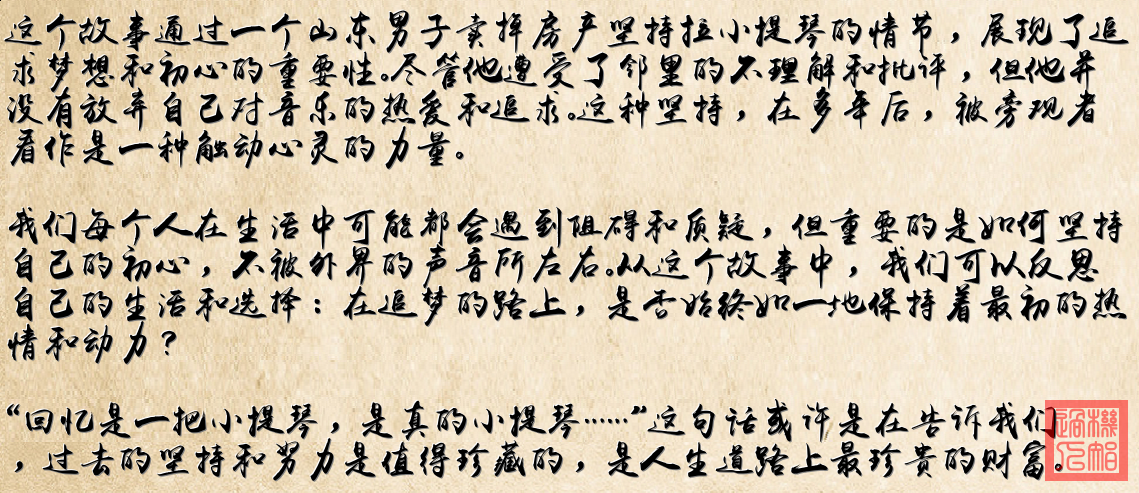 这个故事通过一个山东男子卖掉房产坚持拉小提琴的情节，展现了追
求梦想和初心的重要性。尽管他遭受了邻里的不理解和批评，但他并
没有放弃自己对音乐的热爱和追求。这种坚持，在多年后，被旁观者
看作是一种触动心灵的力量。
我们每个人在生活中可能都会遇到阻碍和质疑，但重要的是如何坚持
自己的初心，不被外界的声音所左右。从这个故事中，我们可以反思
自己的生活和选择：在追梦的路上，是否始终如一地保持着最初的热
情和动力？
“回忆是一把小提琴，是真的小提琴……”这句话或许是在告诉我们
，过去的坚持和努力是值得珍藏的，是人生道路上最珍贵的财富。